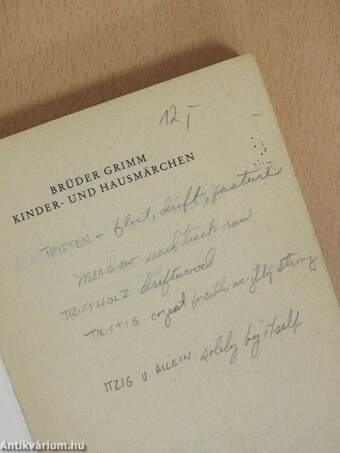 12,-
BRÜDER GRIMM
KINDER- UND HAUSMÄRCHEN
TRIFTEN - float, drift, pasture
meadow track run
TRIFTHOLZ driftwood
TRIFTIG cogent forcible weighty strong
ITZIG U. ALLEIN solely by itself
Antikvárium.hu